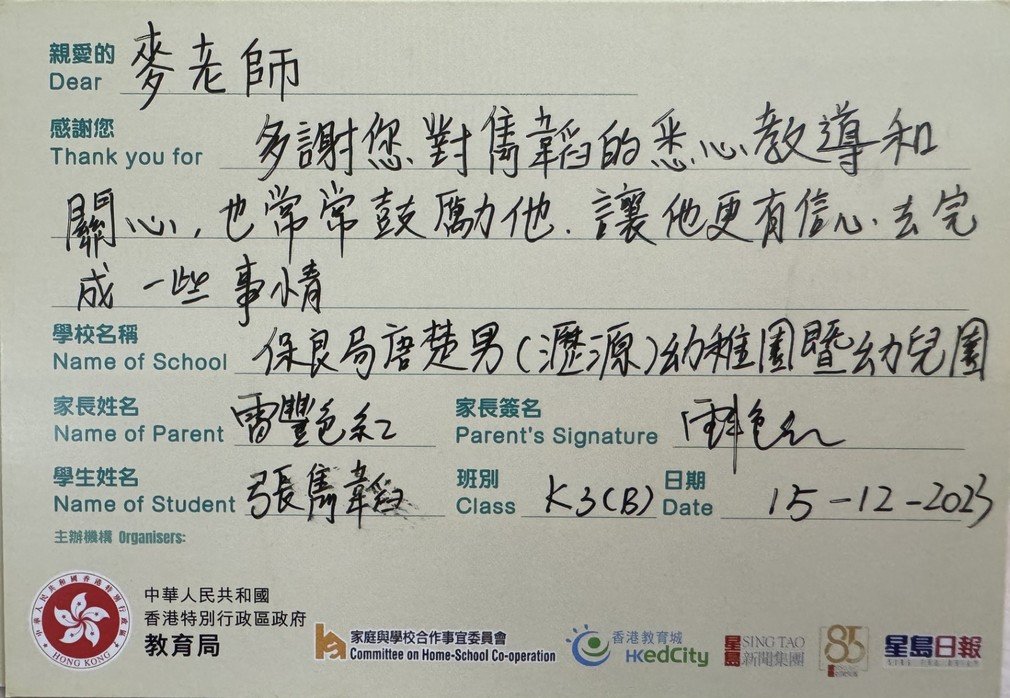 親愛的 麥老師
Dear
感謝您 多謝您對雋韜的悉心教導和
Thank you for
關心,也常常鼓勵他.讓他更有信心去完
成一些事情
學校名稱 保良局唐楚男(瀝源)幼稚園暨幼兒園
Name of School
家長姓名 雷艷紅 家長簽名
Name of Parent Parent's Signature
學生姓名 張雋韜 班別 K3(B) 日期 15-12-2023
Name of Student Class Date
主辦機構 Organisers:
中華人民共和國
香港特別行政區政府
教育局
中華人民共和國香港特別行政區
HONG KONG
家庭與學校合作事宜委員會
Committee on Home-School Co-operation
香港教育城
HKedCity
星島 SING TAO
新聞集團
85
星島日報
SING TAO DAILY